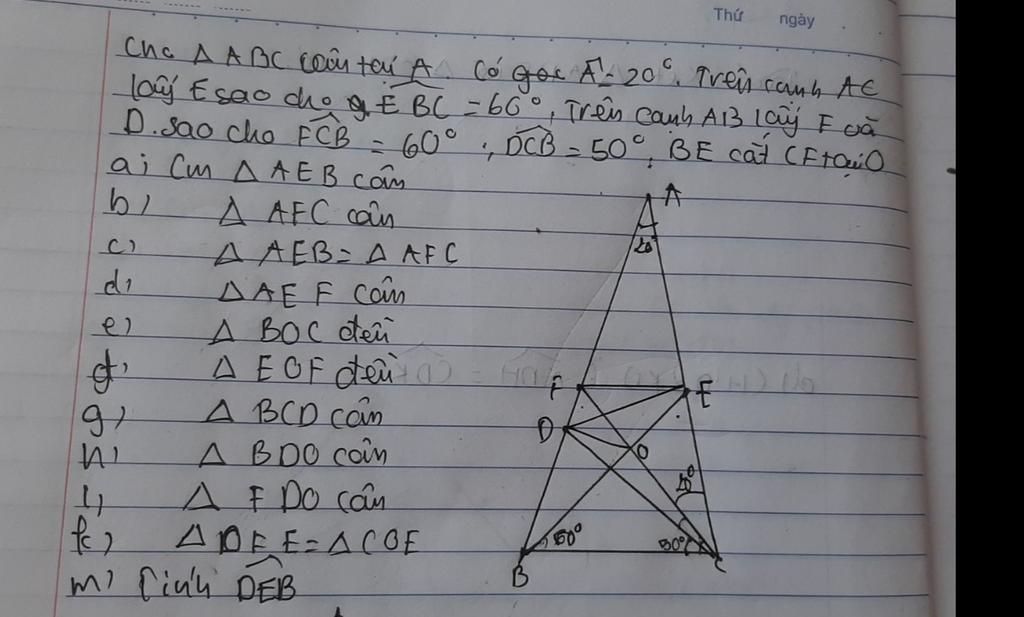 Thứ ngày
Cho △ ABC cân tại A. Có góc Â = 20°. Trên cạnh AC
lấy E sao cho g EBC = 60°, Trên cạnh AB lấy F và
D. sao cho FCB = 60°; DCB = 50°. BE cắt CF tại O
a; Cm △ AEB cân
b) △ AFC cân
c) △ AEB = △ AFC
d) △ AEF cân
e) △ BOC đều
f) △ EOF đều
g) △ BCD cân
h) △ BDO cân
i) △ FDO cân
k) △ DFE = △ COE
m) Tính DEB
A
20°
F
E
D
O
60°
50°
B
C